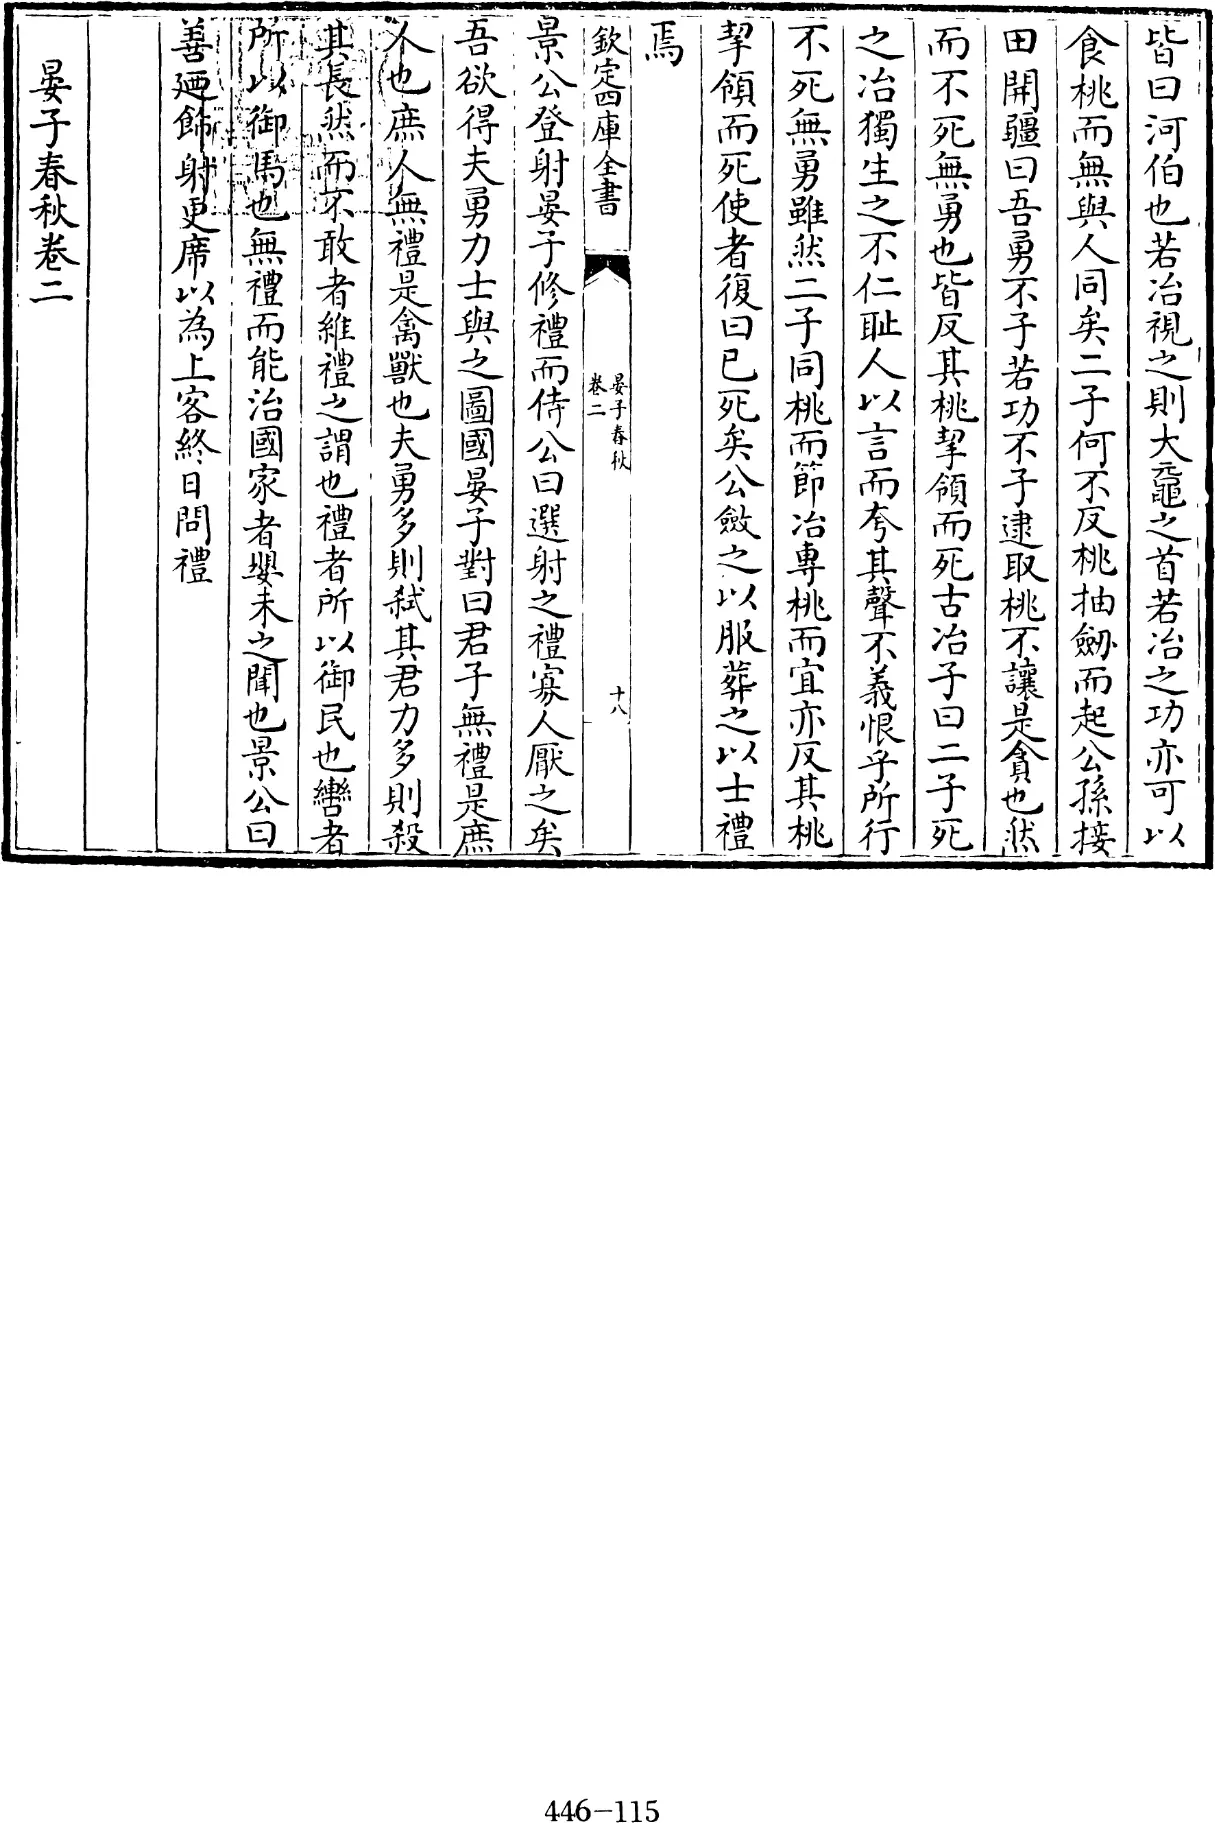 皆曰河伯也若冶視之則大黿之首若冶之功亦可以
食桃而無與人同矣二子何不反桃抽劒而起公孫接
田開疆曰吾勇不子若功不子逮取桃不讓是貪也然
而不死無勇也皆反其桃挈領而死古冶子曰二子死
之冶獨生之不仁耻人以言而夸其聲不義恨乎所行
不死無勇雖然二子同桃而節冶專桃而宜亦反其桃
挈領而死使者復曰已死矣公斂之以服葬之以士禮
焉
欽定四庫全書
晏子春秋
卷二
十八
景公登射晏子修禮而侍公曰選射之禮寡人厭之矣
吾欲得夫勇力士與之圖國晏子對曰君子無禮是庶
人也庶人無禮是禽獸也夫勇多則弑其君力多則殺
其長然而不敢者維禮之謂也禮者所以御民也轡者
所以御馬也無禮而能治國家者嬰未之聞也景公曰
善廼飾射更席以為上客終日問禮
晏子春秋卷二
446-115